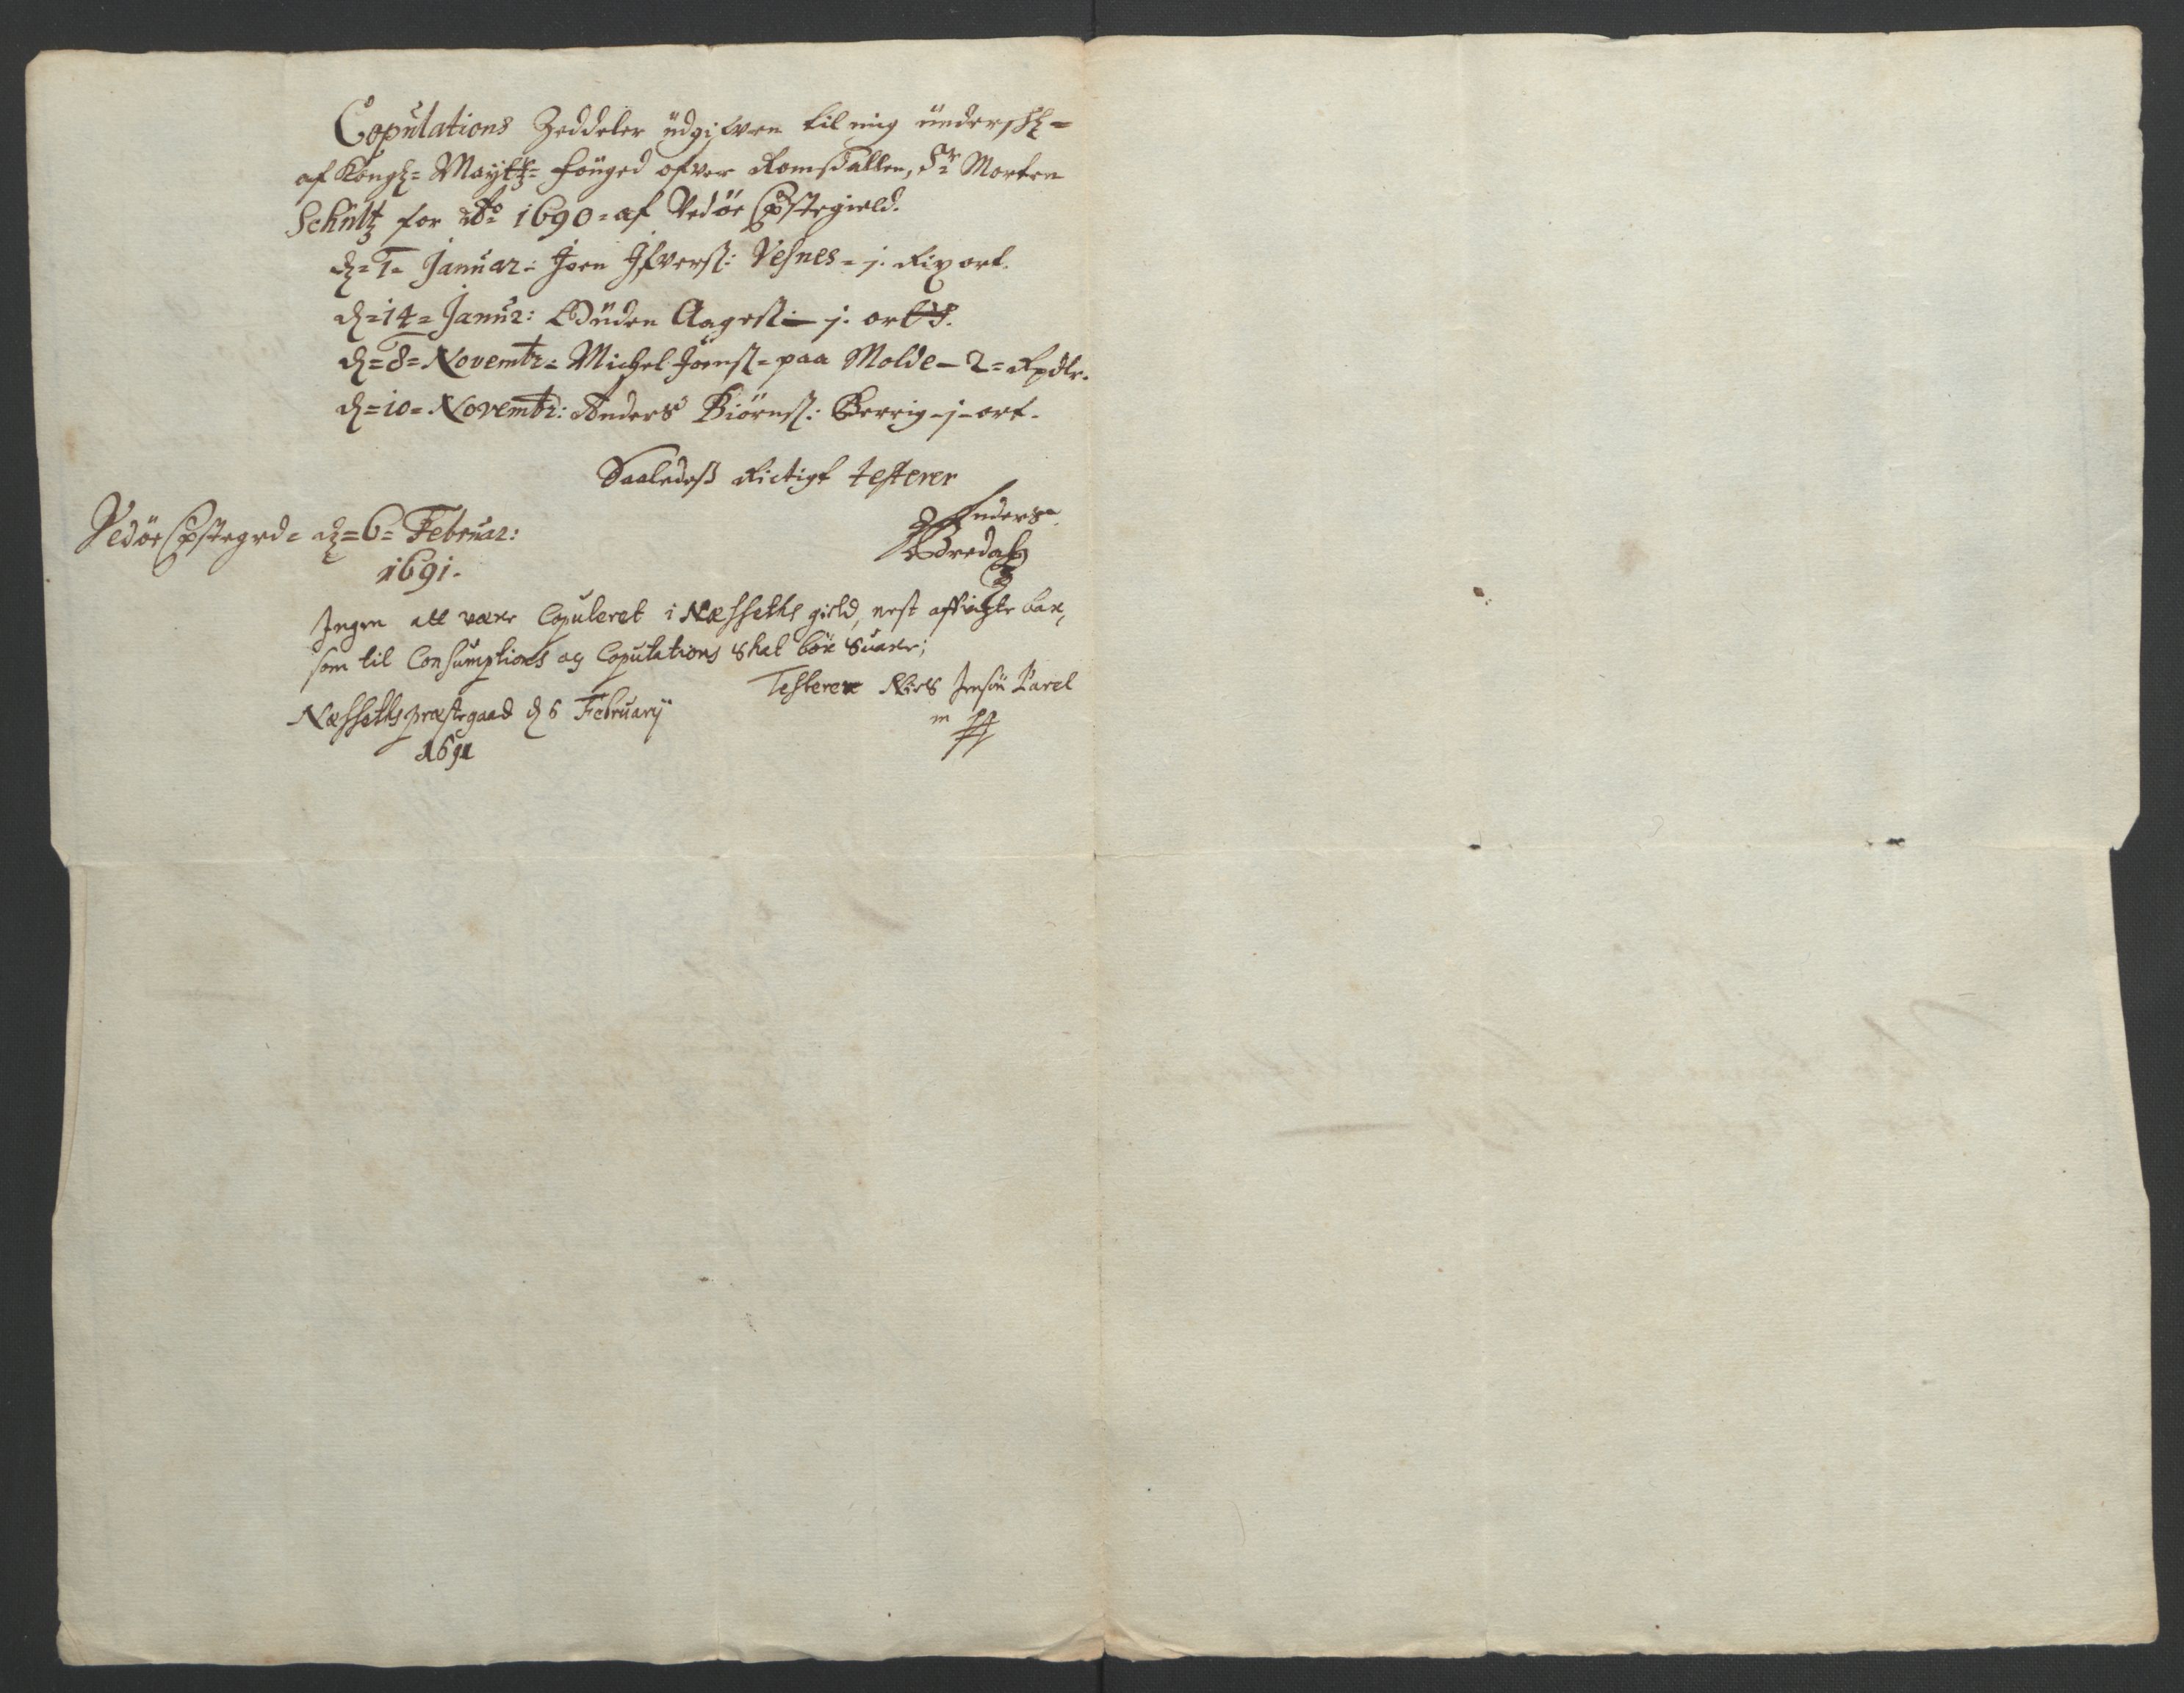 Copulations Zeddeler udgifven til mig undersch=
af Kongl= Maytz= fouged ofver Romsdallen, Sr Morten
Schultz for Ao 1690 = af Vedöe Præstegield.
d= 1 = Januar: Joen Ifversl: Vesnes = j. Rix ort.
d= 14 = Januar: Guden Aagesl: — j. ort
d= 8 = Novembr= Michel Joensl= paa Molde — 2 = Rpdlr.
d= 10 = Novembr: Anders Biörnsl: Berrig - j - ort.
Saaledess Rictigt testerer
Vedöe Præstegrd= d= 6 = Februar: Anders
1691. Bredal
Ingen att være Copuleret i Næsseths gield, nest affvigte aar,
som til Consumptions og Copulations Skat bör Suare;
Testerer Niels Jensön Parel
Næsseths præstegaard d 6 Februarij m pp
1691